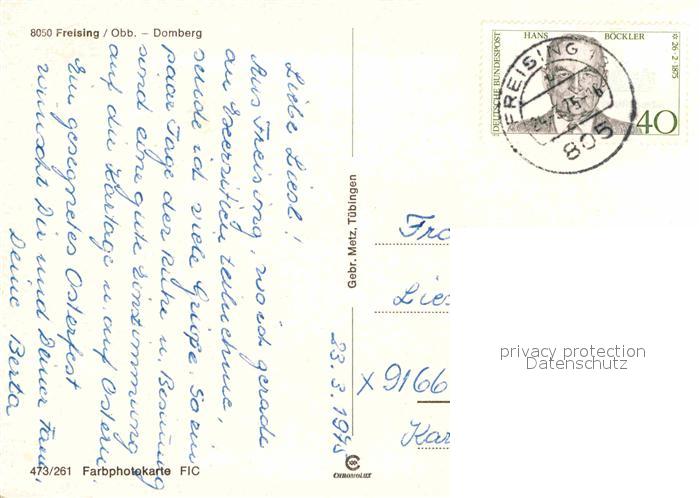 8050 Freising / Obb. – Domberg
Liebe Liesl!
Aus Freising, wo ich gerade
an Exerzitien teilnehme,
sende ich viele Grüße. So ein
paar Tage der Ruhe u. Besinnung
sind eine gute Einstimmung
auf die Kartage u. auf Ostern.
Ein gesegnetes Osterfest
wünscht Dir und Deiner Fam.
Deine Berta
23. 3. 1975
473/261 Farbphotokarte FIC
Gebr. Metz, Tübingen
CHROMOLUX
DEUTSCHE BUNDESPOST
HANS BÖCKLER
* 26·2·1875
40
FREISING 1
805
Lies
X 9166
Kar
privacy protection
Datenschutz